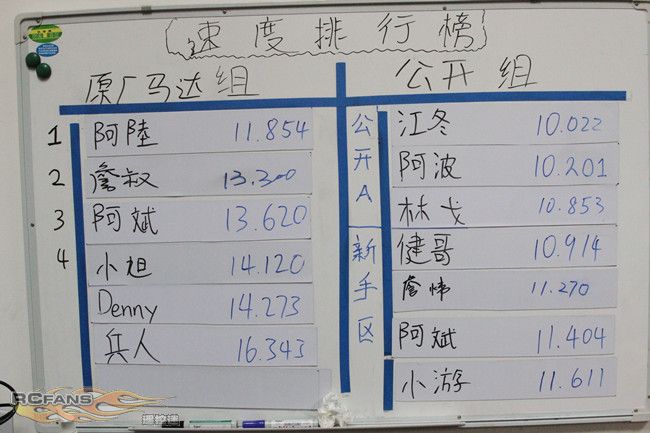 速度排行榜
原厂马达组
公开组
1 阿陸 11.854
2 詹叔 13.300
3 阿斌 13.620
4 小旭 14.120
Denny 14.273
兵人 16.343
公开A
江冬 10.022
阿波 10.201
林戈 10.853
新手区
健哥 10.914
詹炜 11.270
阿斌 11.404
小游 11.611
RCFANS
遥控迷